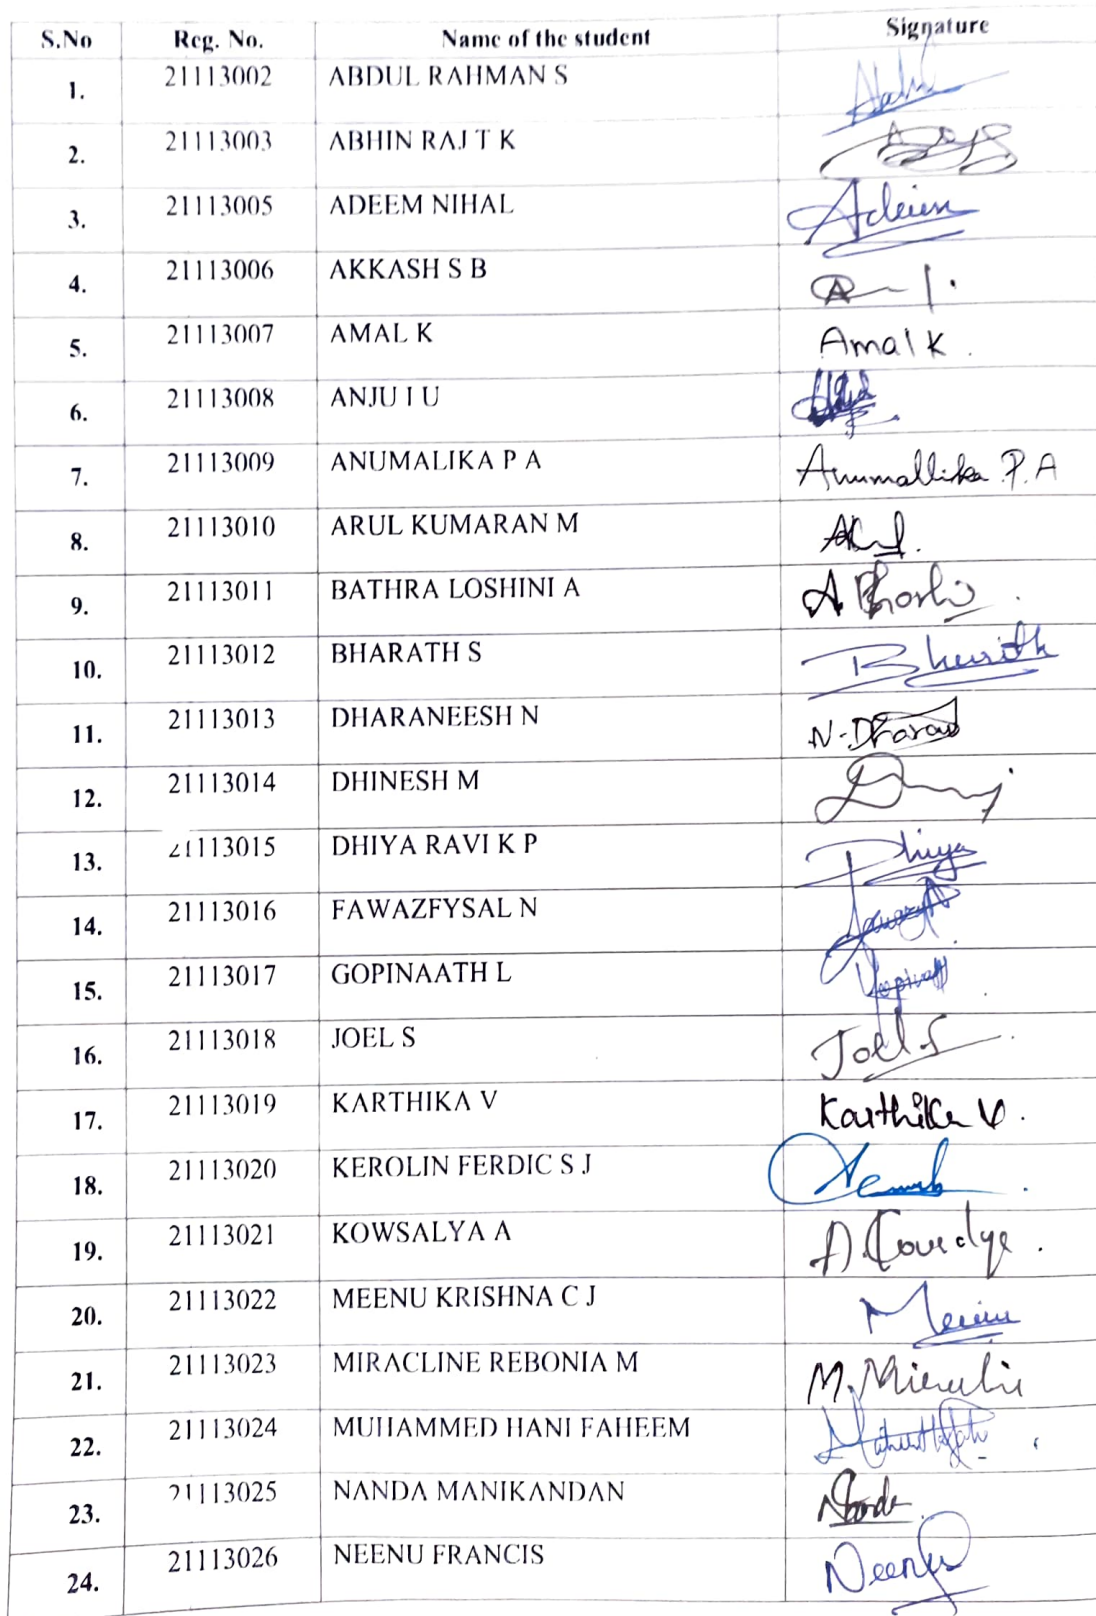 S.No Reg. No. Name of the student Signature
1. 21113002 ABDUL RAHMAN S
2. 21113003 ABHIN RAJ T K
3. 21113005 ADEEM NIHAL Adeem
4. 21113006 AKKASH S B
5. 21113007 AMAL K Amal K .
6. 21113008 ANJU I U
7. 21113009 ANUMALIKA P A Anumallika P.A
8. 21113010 ARUL KUMARAN M
9. 21113011 BATHRA LOSHINI A
10. 21113012 BHARATH S
11. 21113013 DHARANEESH N
12. 21113014 DHINESH M
13. 21113015 DHIYA RAVI K P Dhiya
14. 21113016 FAWAZFYSAL N
15. 21113017 GOPINAATH L
16. 21113018 JOEL S Joel S
17. 21113019 KARTHIKA V Karthika V .
18. 21113020 KEROLIN FERDIC S J
19. 21113021 KOWSALYA A
20. 21113022 MEENU KRISHNA C J
21. 21113023 MIRACLINE REBONIA M
22. 21113024 MUHAMMED HANI FAHEEM
23. 21113025 NANDA MANIKANDAN Nanda
24. 21113026 NEENU FRANCIS Neenu